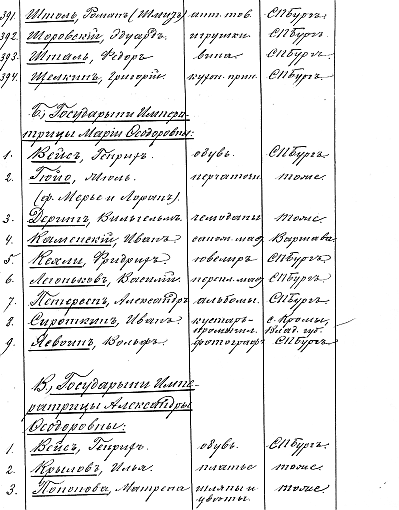 391. Штоль, Романъ (Шмузъ) апт. тов. СПбургъ
392. Шоровскій, Эдуардъ игрушки СПбургъ
393. Шталь, Ѳедоръ вина СПбургъ
394. Щелкинъ, Григорій кухон. прин. СПбургъ.
Б., Государыни Импера-
трицы Маріи Ѳеодоровны:
1. Вейсъ, Генрихъ обувь. СПбургъ.
2. Гюйо, Жюль перчаточ. тоже
(ф. Мерье и Лоранъ).
3. Дерингъ, Вильгельмъ чемоданы тоже
4. Каменскій, Иванъ сапож. маст. Варшава.
5. Кехли, Фридрихъ ювелиръ СПбургъ
6. Леоньковъ, Василій перепл. маст. СПбургъ.
7. Петерсъ, Александръ альбомы. СПбургъ.
8. Сироткинъ, Иванъ кустарь- с. Кромы,
промышл. Влад. губ.
9. Яевоинъ, Вольфъ. фотографъ СПбургъ
В., Государыни Импе-
ратрицы Александры
Ѳеодоровны:
1. Вейсъ, Генрихъ. обувь. СПбургъ.
2. Крыловъ, Илья. платье тоже
3. Попонова, Матрена шляпы и тоже
цвѣты.